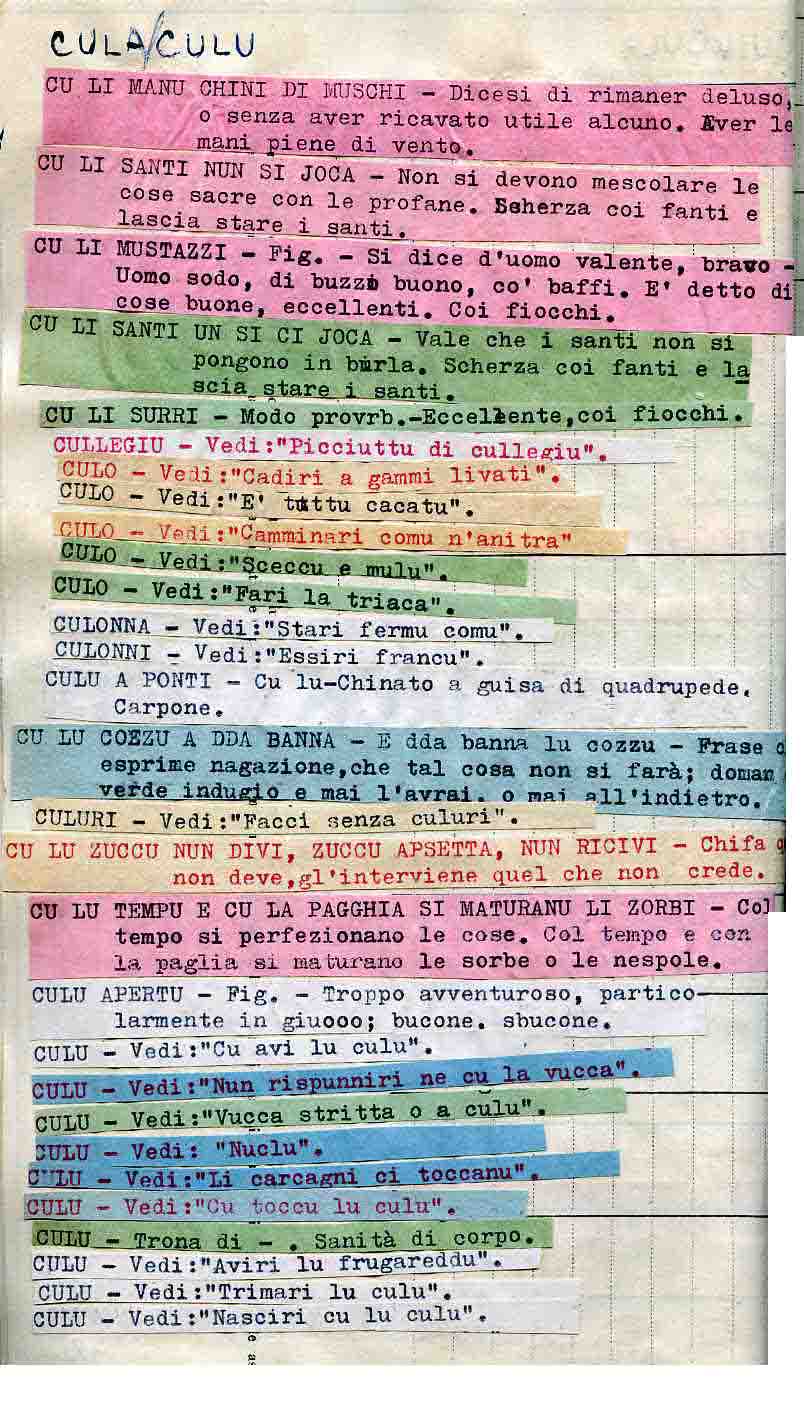 CULA/CULU
CU LI MANU CHINI DI MUSCHI - Dicesi di rimaner deluso,
o senza aver ricavato utile alcuno. Aver le
mani piene di vento.
CU LI SANTI NUN SI JOCA - Non si devono mescolare le
cose sacre con le profane. Scherza coi fanti e
lascia stare i santi.
CU LI MUSTAZZI - Fig. - Si dice d'uomo valente, bravo -
Uomo sodo, di buzzo buono, co' baffi. E' detto di
cose buone, eccellenti. Coi fiocchi.
CU LI SANTI UN SI CI JOCA - Vale che i santi non si
pongono in burla. Scherza coi fanti e la
scia stare i santi.
CU LI SURRI - Modo provrb.-Eccellente,coi fiocchi.
CULLEGIU - Vedi:"Picciuttu di cullegiu".
CULO - Vedi:"Cadiri a gammi livati".
CULO - Vedi:"E' tuttu cacatu".
CULO - Vedi:"Camminari comu n'anitra"
CULO - Vedi:"Sceccu e mulu".
CULO - Vedi:"Fari la triaca".
CULONNA - Vedi:"Stari fermu comu".
CULONNI - Vedi:"Essiri francu".
CULU A PONTI - Cu lu-Chinato a guisa di quadrupede.
Carpone.
CU LU COZZU A DDA BANNA - E dda banna lu cozzu - Frase
esprime nagazione,che tal cosa non si farà; doman
verde indugio e mai l'avrai. o mai all'indietro.
CULURI - Vedi:"Facci senza culuri".
CU LU ZUCCU NUN DIVI, ZUCCU APSETTA, NUN RICIVI - Chifa
non deve,gl'interviene quel che non crede.
CU LU TEMPU E CU LA PAGGHIA SI MATURANU LI ZORBI - Col
tempo si perfezionano le cose. Col tempo e con
la paglia si maturano le sorbe o le nespole.
CULU APERTU - Fig. - Troppo avventuroso, partico-
larmente in giuooo; bucone. sbucone.
CULU - Vedi:"Cu avi lu culu".
CULU - Vedi:"Nun rispunniri ne cu la vucca".
CULU - Vedi:"Vucca stritta o a culu".
CULU - Vedi: "Nuclu".
CULU - Vedi:"Li carcagni ci toccanu".
CULU - Vedi:"Cu toccu lu culu".
CULU - Trona di - . Sanità di corpo.
CULU - Vedi:"Aviri lu frugareddu".
CULU - Vedi:"Trimari lu culu".
CULU - Vedi:"Nasciri cu lu culu".